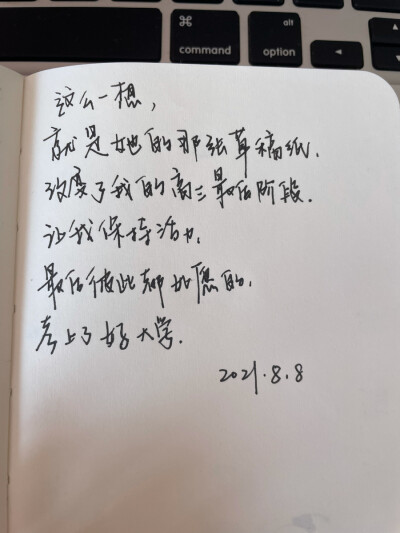 ⌘
command
alt
option
◄
这么一想，
就是她的那张草稿纸.
改变了我的高三最后阶段.
让我保持活力.
最后彼此都如愿的,
考上了好大学.
2021.8.8